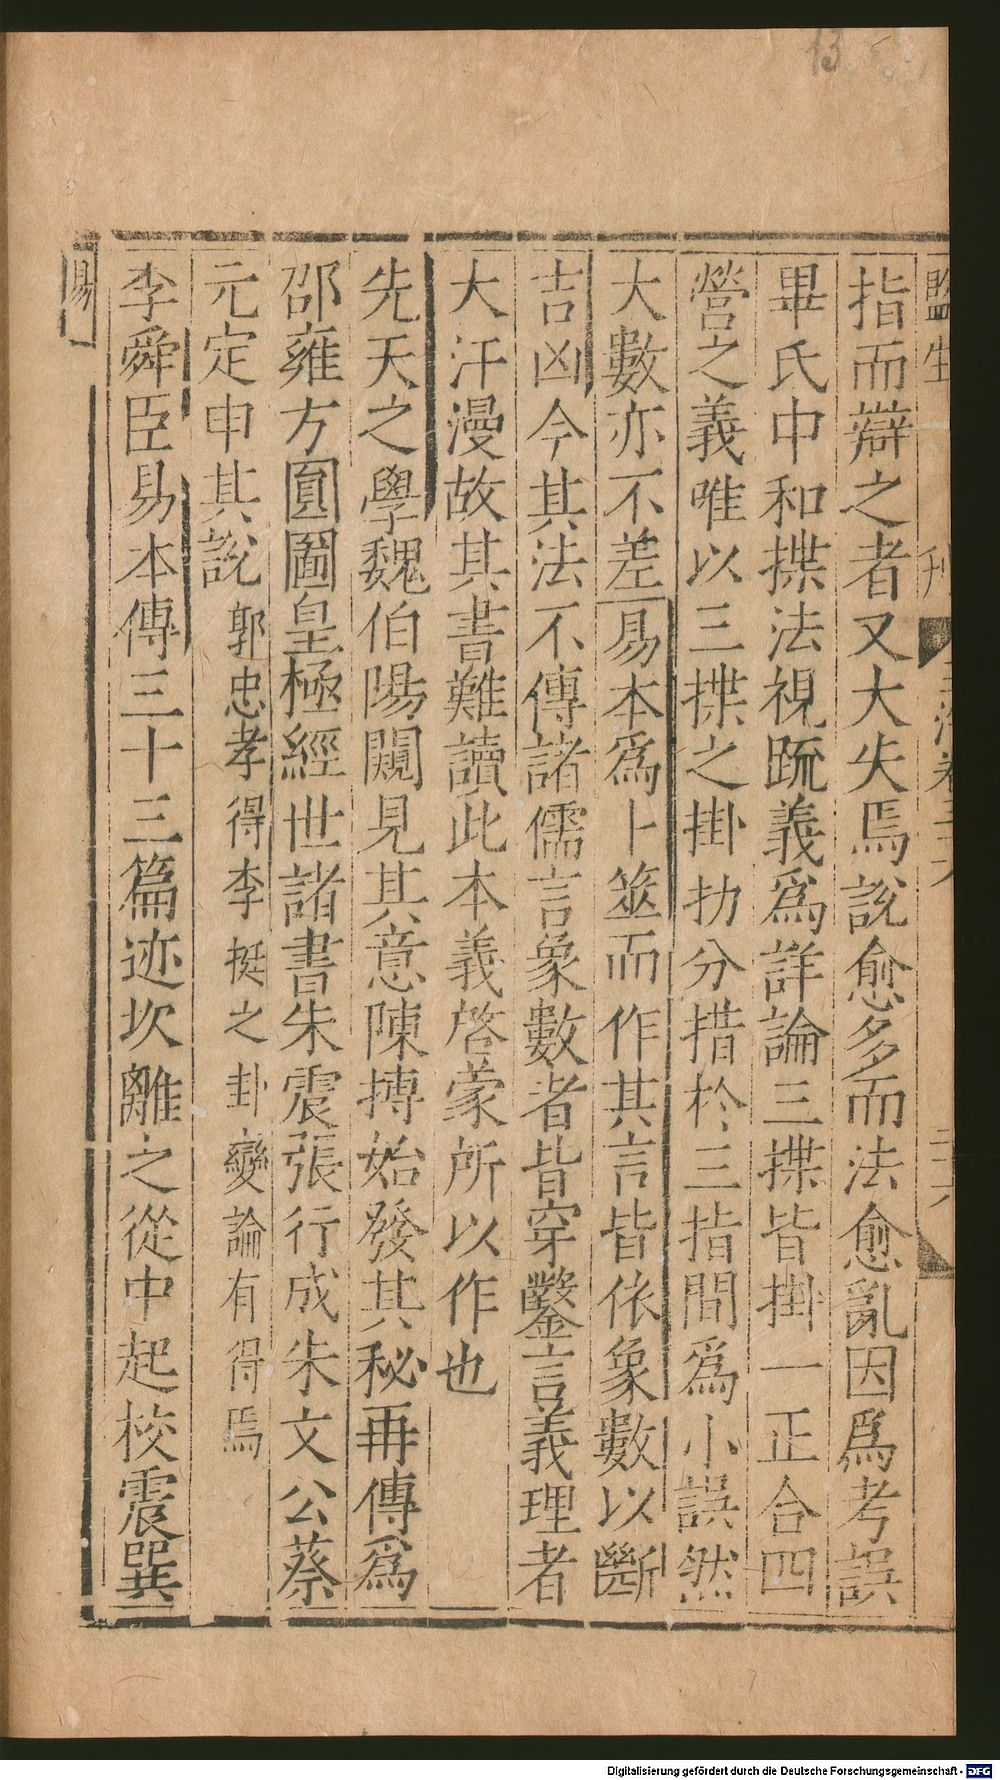 指而辯之者又大失焉說愈多而法愈亂因爲考誤
畢氏中和揲法視疏義爲詳論三揲皆掛一正合四
營之義唯以三揲之掛扐分措於三指間爲小誤然
大數亦不差易本爲卜筮而作其言皆依象數以斷
吉凶今其法不傳諸儒言象數者皆穿鑿言義理者
大汗漫故其書難讀此本義啓蒙所以作也
先天之學魏伯陽闚見其意陳摶始發其秘再傳爲
邵雍方圓圖皇極經世諸書朱震張行成朱文公蔡
元定申其說郭忠孝得李挺之卦變論有得焉
李舜臣易本傳三十三篇迹坎離之從中起校震巽
易
監生 刊
二十六
13
Digitalisierung gefördert durch die Deutsche Forschungsgemeinschaft - DFG